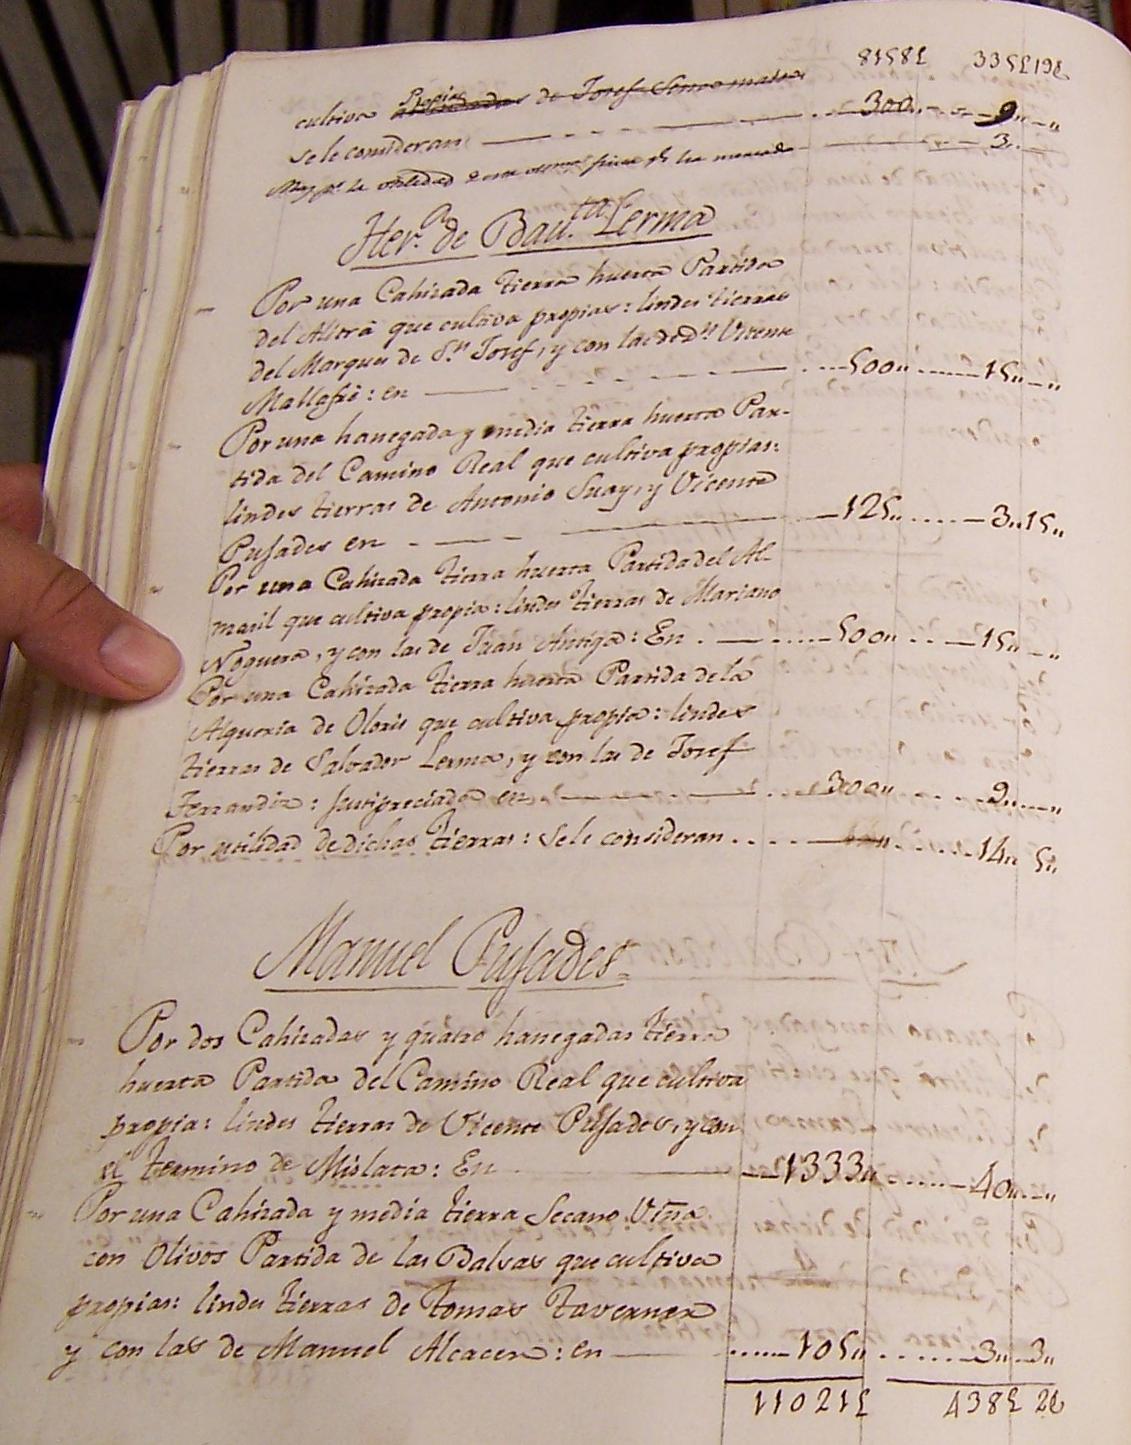 8158£ 335£19£
cultiva Propias de Josef
se le consideran 300,, 9,, ,,
May.r p.r la utilidad 3
Her.a de Bau.ta Lerma
Por una Cahizada tierra huerta Partida
del Alitrá que cultiva propias: lindes tierras
del Marques de S.n Josef, y con las de d.n Vicente
Mallafré: en 500,, 15,, ,,
Por una hanegada y media tierra huerta Par-
tida del Camino Real que cultiva propias:
lindes tierras de Antonio Suay, y Vicente
Pusades en 125,, 3,, 15,,
Por una Cahizada tierra huerta Partida del Al-
maril que cultiva propia: lindes tierras de Mariano
Noguera, y con las de Juan Antiga: En 500,, 15,, ,,
Por una Cahizada tierra huerta Partida de la
Alqueria de Oloris que cultiva propia: lindes
tierras de Salvador Lerma, y con las de Josef
Ferrandiz: justipreciada en 300,, 9,, ,,
Por utilidad de dichas tierras: se le consideran 14,, 5,,
Manuel Pusades
Por dos Cahizadas y quatro hanegadas tierra
huerta Partida del Camino Real que cultiva
propia: lindes tierras de Vicente Pusades, y con
el termino de Mislata: En 1333,, 40,, ,,
Por una Cahizada y media tierra Secano Viña
con Olivos Partida de las Balsas que cultiva
propias: lindes tierras de Tomas Taverner
y con las de Manuel Alcacer: en 105,, 3,, 3,,
11021£ 438£ 2£